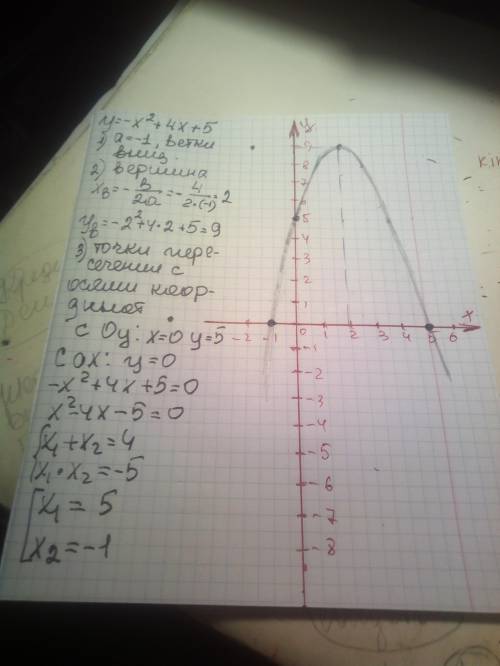 y=-x²+4x+5
1) a=-1, ветки
вниз.
2) вершина
xв=-в/2a=-4/2·(-1)=2
yв=-2²+4·2+5=9
3) точки пере-
сечении с
осями коор-
динат
С Oy: x=0 y=5
С Ox: y=0
-x²+4x+5=0
x²-4x-5=0
{x₁+x₂=4
x₁·x₂=-5
[x₁=5
x₂=-1
y
9
8
7
6
5
4
3
2
1
-2 -1 0 1 2 3 4 5 6 x
-1
-2
-3
-4
-5
-6
-7
-8